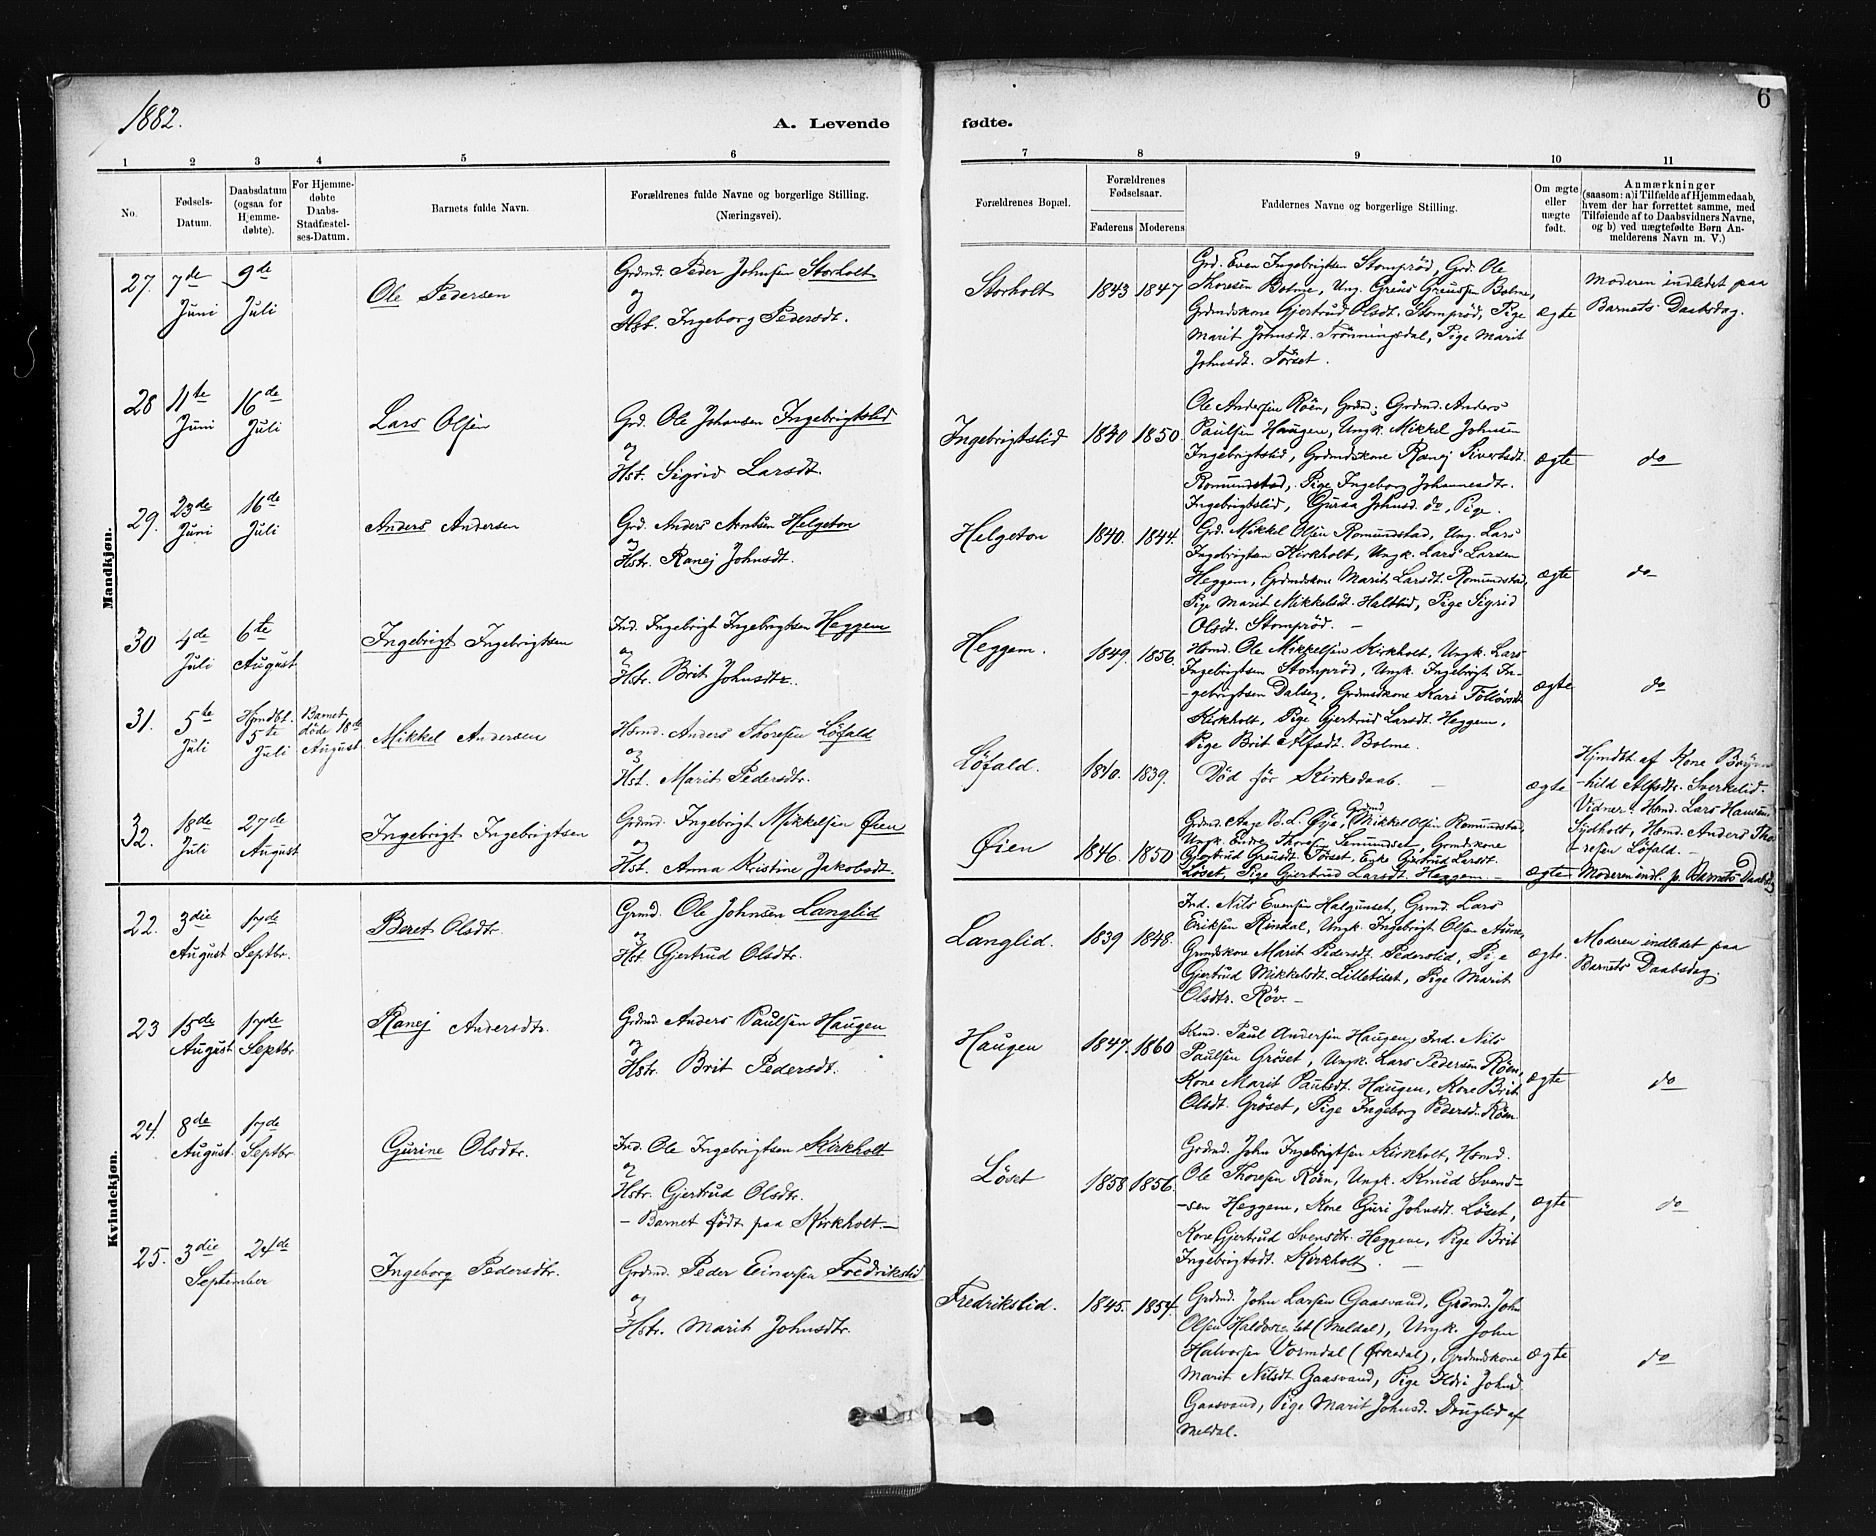 1882.
A. Levende
fødte.
6
1 2 3 4 5 6 7 8 9 10 11
No.
Fødsels-Datum.
Daabsdatum (ogsaa for Hjemme-døbte).
For Hjemme-døbte Daabs-Stadfæstel-ses-Datum.
Barnets fulde Navn.
Forældrenes fulde Navne og borgerlige Stilling.
(Næringsvei).
Forældrenes Bopæl.
Forældrenes Fødselsaar.
Faderens Moderens
Faddernes Navne og borgerlige Stilling.
Om ægte eller uægte født.
Anmærkninger
(saasom: a) i Tilfælde af Hjemmedaab,
hvem der har forrettet samme, med
Tilføiende af to Daabsvidners Navne,
og b) ved uægtefødte Børn An-
melderens Navn m. V.)
Mandkjøn.
27. 7de Juni 9de Juli
Ole Pedersen
Grdmd. Peder Johnsen Storholt
og
Hst. Ingeborg Pedersdt.
Storholt 1843 1847
Grd. Even Ingebrigtsen Stomprød, Grd. Ole
Thoresen Bolme, Ung. Greus Greussen Bolme,
Grdmdskone Gjertrud Olsdt. Stomprød, Pige
Marit Johnsdt. Trønningsdal, Pige Marit
Johnsdt. Törset.
ægte
Moderen indledet paa
Barnets Daabsdag.
28 11te Juni 16de Juli
Lars Olsen
Grd. Ole Johansen Ingebrigtslid
og
Hst. Sigrid Larsdt.
Ingebrigtslid 1840 1850.
Ole Andersen Röen, Grdm; Grdmd. Anders
Paulsen Haugen, Ungk. Mikkel Johnsen
Ingebrigtslid, Grdmdskone Ranej Sivertsdt.
Romundstad, Pige Ingeborg Johannesdtr.
Ingebrigtslid, Guraa Johnsd. do, Pige.
ægte
do
29. 23de Juni 16de Juli
Anders Andersen
Grd. Anders Arntsen Helgeton
og
Hstr. Ranej Johnsdt.
Helgeton 1840. 1844.
Grd. Mikkel Olsen Romundstad, Ung. Lars
Ingebrigtsen Kirkholt, Ungk. Lars Larsen
Heggem, Grdmdskone Marit Larsdt. Romundstad,
Pige Marit Mikkelsdt. Haltlid, Pige Sigrid
Olsdt. Stomprød. —
ægte
do
30 4de Juli 6te August
Ingebrigt Ingebrigtsen
Ind. Ingebrigt Ingebrigtsen Heggem
og
Hstr. Brit Johnsdtr.
Heggem. 1849. 1856.
Hsmd. Ole Mikkelsen Kirkholt, Ungk. Lars
Ingebrigtsen Stomprød, Ungk. Ingebrigt In-
-gebrigtsen Dalseg, Grdmdskone Kari
Kirkholt, Pige Gjertrud Larsdt. Heggem,
Pige Brit Alfsdt. Bolme.
ægte
do
31. 5te Juli Hjmdbt. 5te Juli
Barnet
døde 18de
August
Mikkel Andersen
Hsmd. Anders Thoresen Löfald
og
Hst. Marit Pedersdtr.
Löfald. 1840. 1839.
Död för Kirkedaab. —
ægte
Hjmdbt. af Kone Bryn-
-hild Alfsdtr. Sverkelid.
Vidner: Hsmd. Lars Hansen
Sydholt, Hsmd. Anders Tho-
-resen Löfald. —
32. 18de Juli 27de August
Ingebrigt Ingebrigtsen
Grdmd. Ingebrigt Mikkelsen Øien
og
Hst. Anna Kristine Jakobsdt.
Øien 1846. 1850
Grdmd. Aage N. L. Øye, Grdmd Mikkel Olsen Romundstad,
Ungk. Endre Thoresen Semundset, Grmdskone
Gjertrud Greusdt. Törset, Gjertrud Larsdt.
Løset, Pige Gjertrud Larsdt. Heggem. —
ægte
Moderen indl. p. Barnets Daabsdag
Kvindekjøn.
22. 3die August 17de Septbr.
Beret Olsdtr.
Grmd. Ole Johnsen Langlid
og
Hst. Gjertrud Olsdtr.
Langlid. 1839 1848.
Ind. Nils Evensen Halgunset, Grmd. Lars
Eriksen Rindal, Ungk. Ingebrigt Olsen Aune,
Grmdskone Marit Pedersdt. Pederslid, Pige
Gjertrud Mikkelsdt. Lilletiset, Pige Marit
Olsdtr. Röv. —
ægte.
Moderen indledet paa
Barnets Daabsdag.
23 15de August 17de Septbr
Ranej Andersdtr.
Grdmd. Anders Paulsen Haugen
og
Hstr. Brit Pedersdt.
Haugen 1847. 1860
Paul Andersen Haugen, Ind. Nils
Paulsen Gröset, Ungk. Lars Pedersen Röen,
Kone Marit Paulsdt. Haugen, Kone Brit
Olsdt. Gröset, Pige Ingeborg Pedersd. Röen
ægte
do
24. 8de August. 17de Septbr.
Gurine Olsdtr.
Ind. Ole Ingebrigtsen Kirkholt
og
Hstr. Gjertrud Olsdtr.
– Barnet födt paa Kirkholt. —
Löset 1858 1856.
Grdmd. John Ingebrigtsen Kirkholt, Hsmd.
Ole Thoresen Röen, Ungk. Knud Svend-
-sen Heggem, Kone Guri Johnsdt. Löset,
Kone Gjertrud Svensdtr. Heggem, Pige Brit
Ingebrigtsdt. Kirkholt. —
ægte
do
25. 3die September 24de
Ingeborg Pedersdtr.
Grdmd. Peder Einarsen Fredrikslid
og
Hstr. Marit Johnsdtr.
Fredrikslid. 1845. 1854.
Grdmd. John Larsen Gaasvand, Grdmd. John
Olsen (Meldal), Ungk. John
Halvorsen Vormdal (Örkedal), Grdmdskone
Marit Nilsdt Gaasvand, Pige Ildri Johnsd
Gaasvand, Pige Marit Johnsd. Druglid af
Meldal.
ægte
do